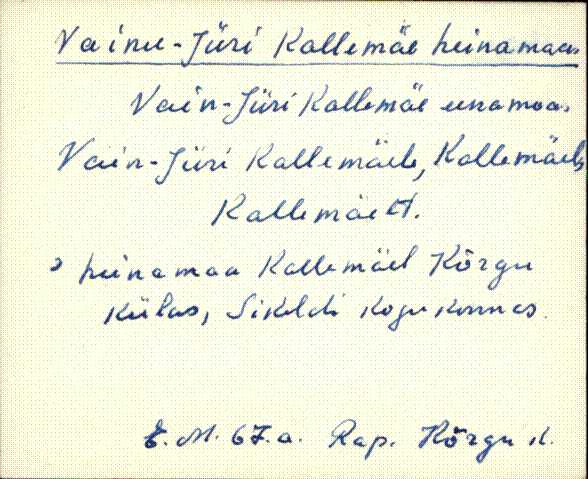 Vainu-Jüri Kallemäe heinamaa.
Vain-Jüri Kallemäe einamaa.
Vain-Jüri Kallemäele, Kallemäel,
Kallemäelt.
heinamaa Kallemäel Kõrgu
külas, Sikeldi kogukonnas.
E. M. 67.a. Rap. Kõrgu k.